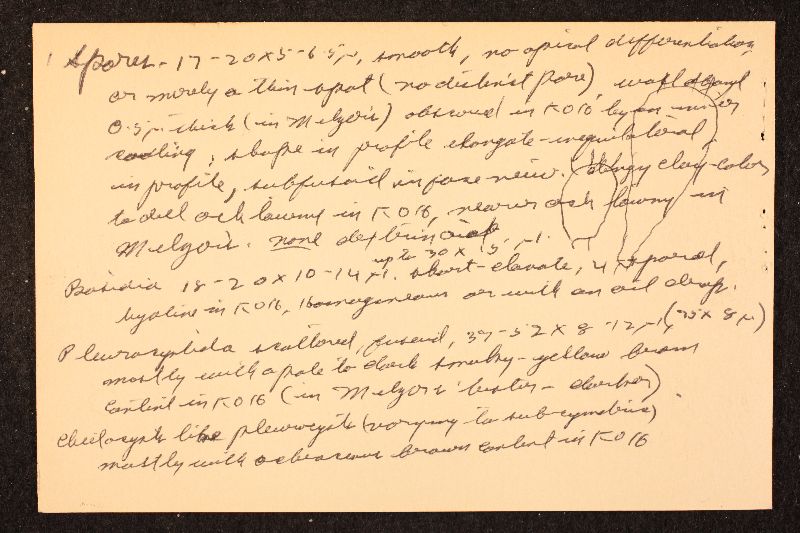 Spores - 17-20 x 5-6.5 µ, smooth, no apical differentiation
or merely a thin spot (no distinct pore), wall about
0.5 µ thick (in Melzer's) obscured in KOH by an inner
coating; shape in profile elongate-inequilateral
in profile, subfusoid in face view. dingy clay-color
to dull och tawny in KOH, near och tawny in
Melzer's. none dextrinoid
up to 30 x 15 µ.
Basidia 18-20 x 10-14 µ. short-clavate, 4 spored,
hyaline in KOH, homogeneous or with an oil drop.
Pleurocystidia scattered, fusoid, 37-52 x 8-12 µ, (75 x 8 µ)
mostly with a pale to dark smoky-yellow brown
content in KOH (in Melzer's - darker)
Cheilocysts like pleurocysts (varying to sub-cymbiric)
mostly with ochraceous brown content in KOH